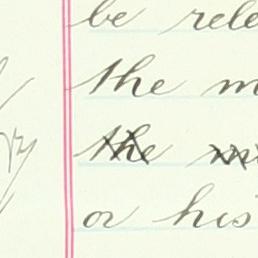 be rele
the m
the mi
or his